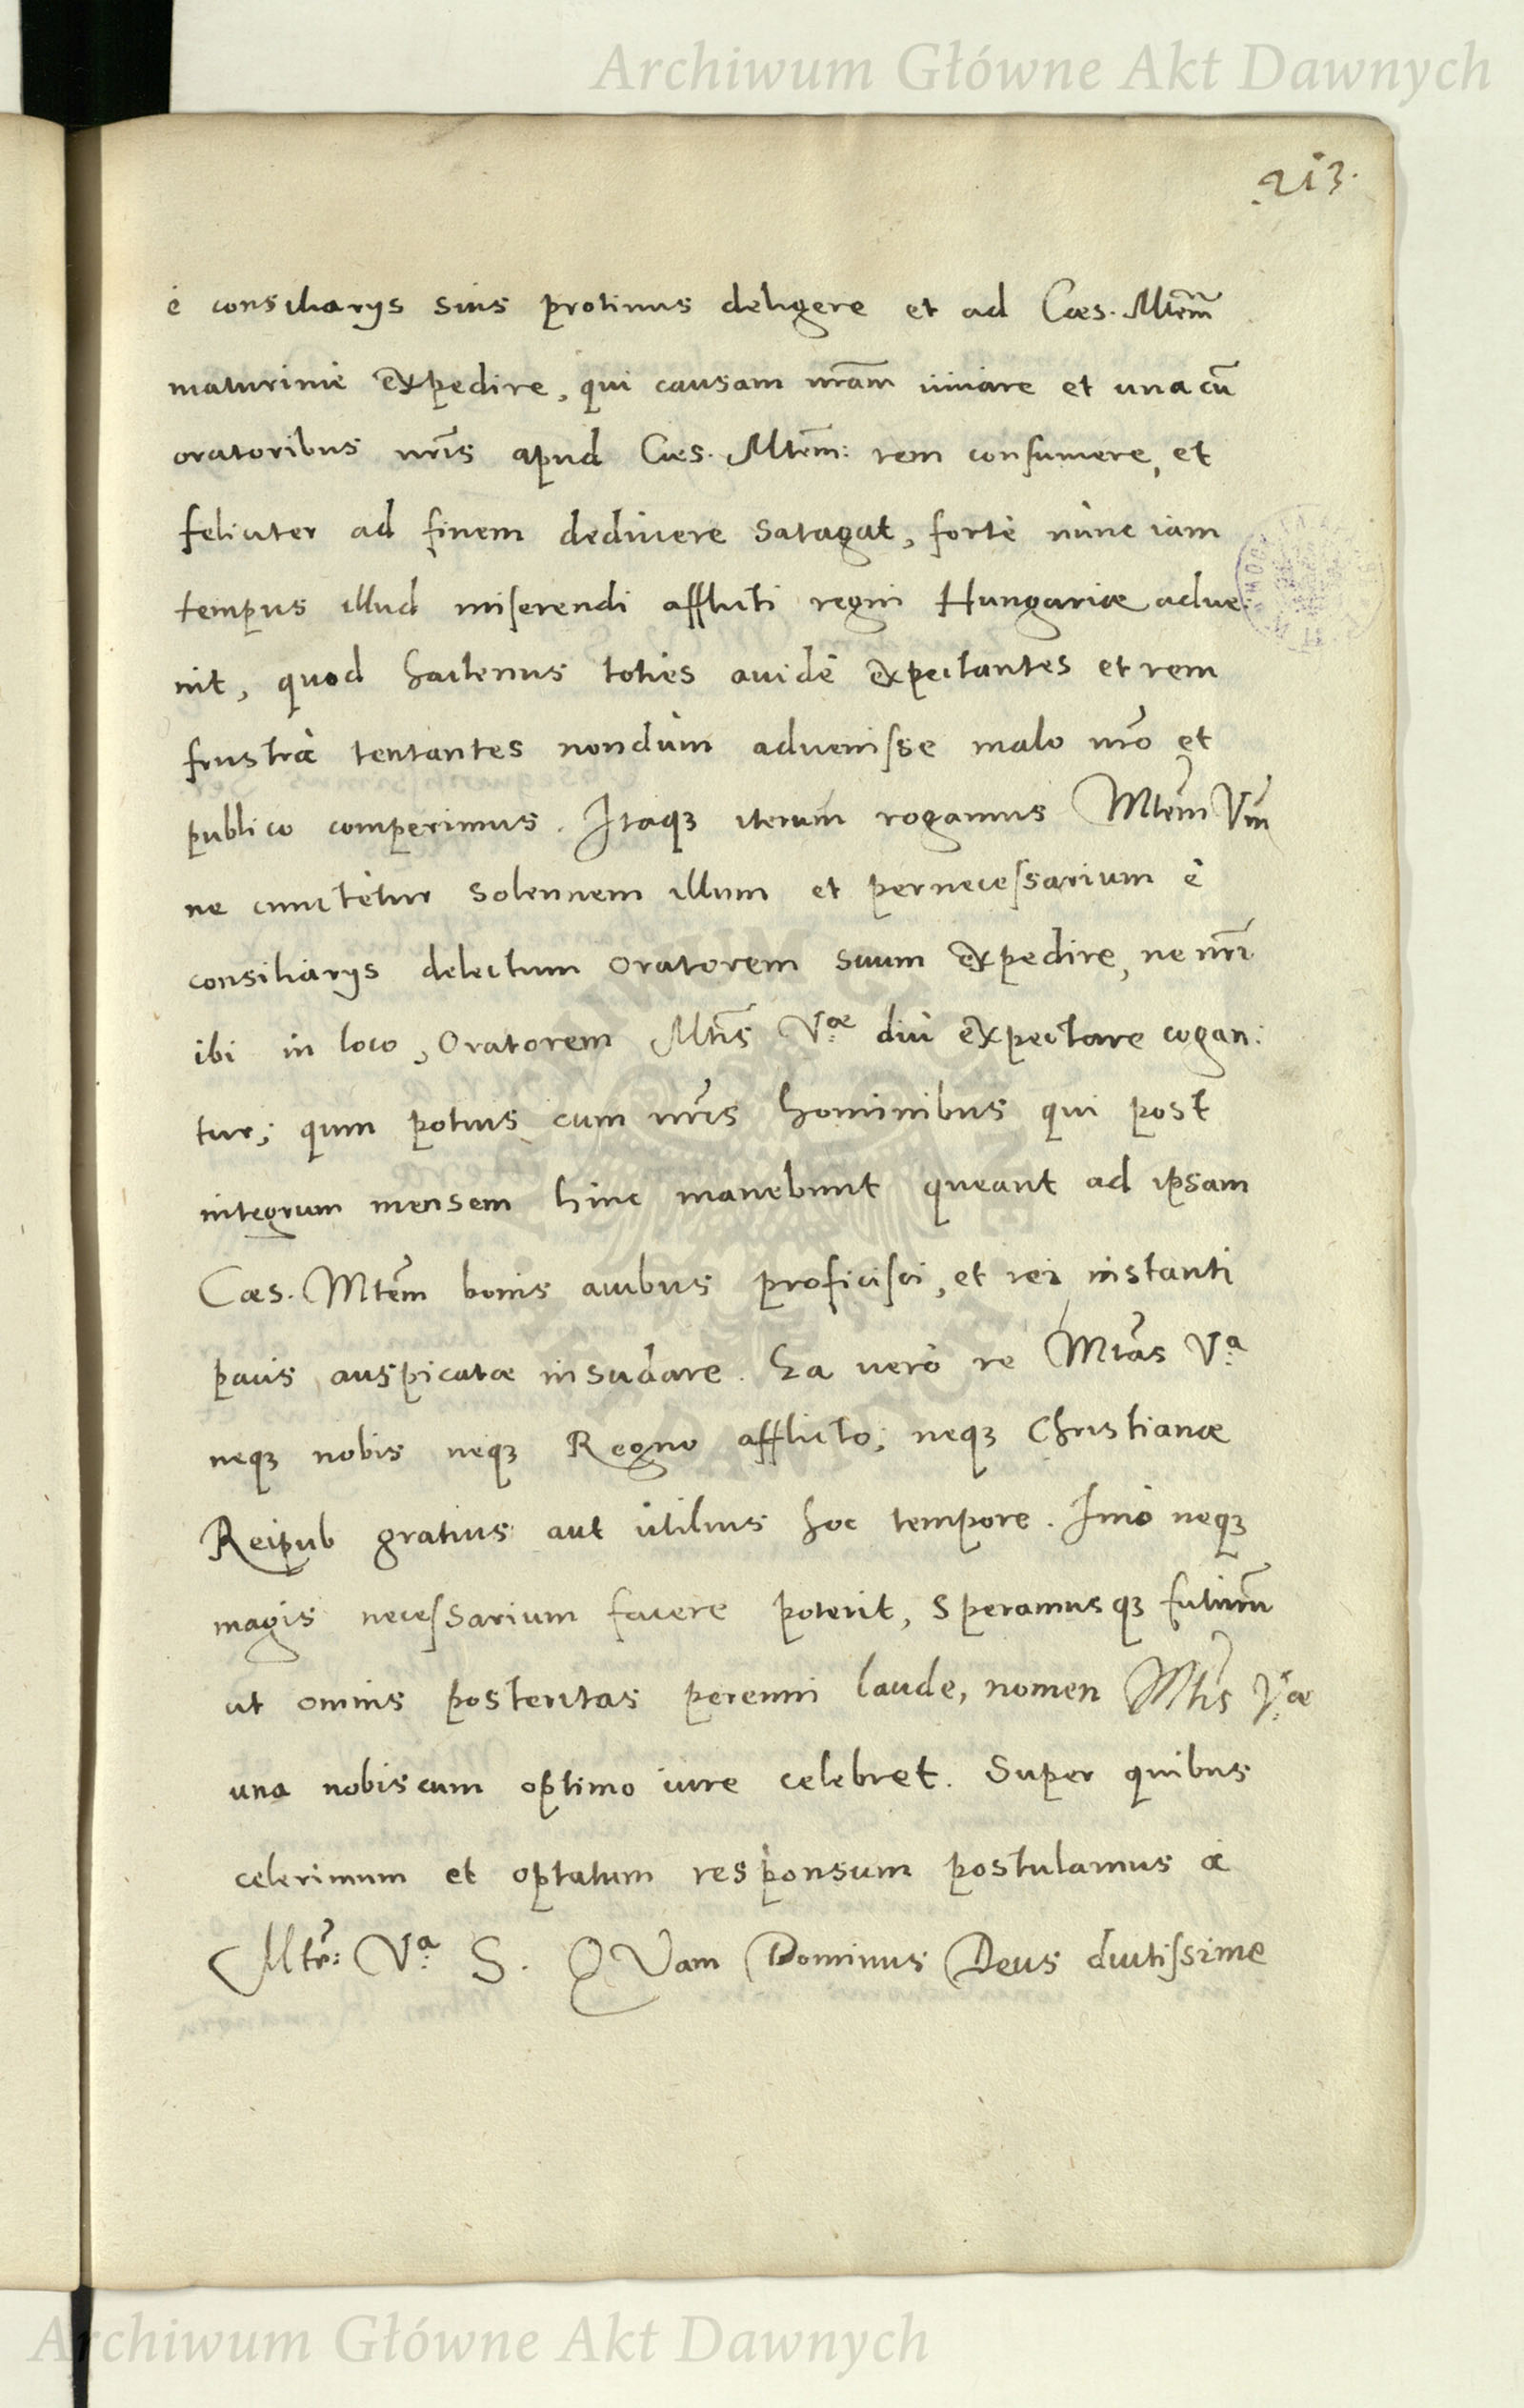 Archiwum Główne Akt Dawnych
213.
è consiliarijs suis protinus deligere et ad Caes. Mtem̃
maturimè expedire, qui causam nr̃am iuuare et una cũ
oratoribus nr̃is apud Caes. Mtem̃: rem consumere, et
feliciter ad finem deducere satagat, fortè nunc iam
tempus illud miserendi afflicti regni Hungariae adue:
nit, quod hactenus toties auidè expectantes et rem
frustrà tentantes nondùm aduenisse malo nr̃o et
publico comperimus. Itaqꝫ iterum rogamus Mtem̃ Vrm̃
ne cunctètur solennem illum et pernecessarium è
consiliarijs delectum oratorem suum expedire, ne nr̃i
ibi in loco, Oratorem Mtis̃ V:ae diu expectare cogan:
tur; quin potius cum nr̃is hominibus qui post
integrum mensem hinc manebunt queant ad ipsam
Caes. Mtem̃ bonis auibus proficisci, et rei instanti
pacis auspicatae insudare. Ea verò re Mtas̃ V:a
neqꝫ nobis neqꝫ Regno afflicto; neqꝫ Christianae
Reipub gratius aut utilius hoc tempore. Imò neqꝫ
magis necessarium facere poterit, Speramusqꝫ futurũ
ut omnis posteritas perenni laude, nomen Mtis̃ V:ae
una nobiscum optimo iure celebret. Super quibus
celerimum et optatum responsum postulamus à
Mte: V:a S. QVam Dominus Deus diutissime
Archiwum Główne Akt Dawnych